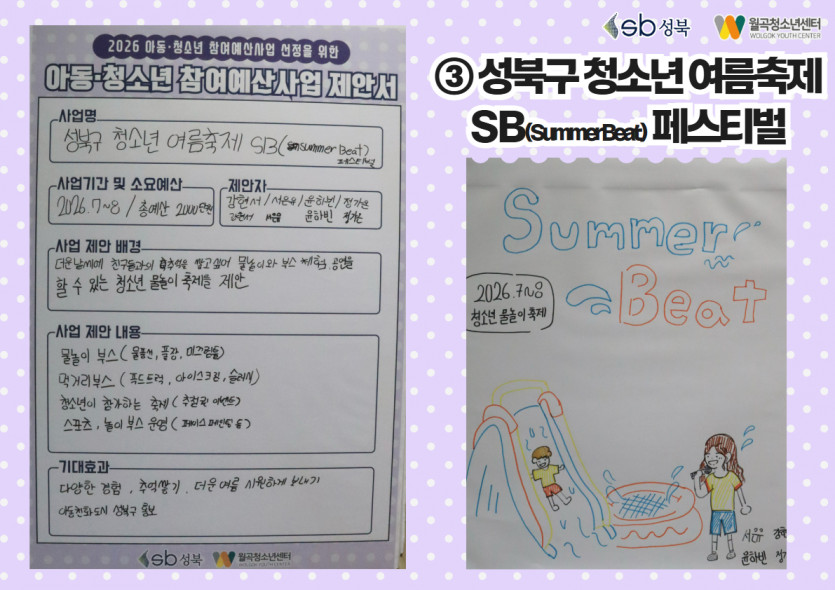 sb성북
월곡청소년센터
WOLGOK YOUTH CENTER
③ 성북구 청소년 여름축제
SB(SummerBeat) 페스티벌
2026 아동·청소년 참여예산사업 선정을 위한
아동·청소년 참여예산사업 제안서
사업명
성북구 청소년 여름축제 SB(summer Beat)
페스티벌
사업기간 및 소요예산
2026.7~8 / 총예산 2000만원
제안자
감현서 / 서은유 / 윤하빈 / 정가은
윤하빈
사업 제안 배경
더운날씨에 친구들과의 추억을 쌓고싶어 물놀이와 부스 체험, 공연을
할 수 있는 청소년 물놀이 축제를 제안
사업 제안 내용
물놀이 부스 (물풍선, 풀장, 미끄럼틀)
먹거리부스 (푸드트럭, 아이스크림, 슬러시)
청소년이 참가하는 축제 (추첨권 이벤트)
스포츠, 놀이 부스 운영 (페이스페인팅 등)
기대효과
다양한 경험, 추억쌓기, 더운여름 시원하게 보내기
아동친화도시 성북구 홍보
sb성북
월곡청소년센터
WOLGOK YOUTH CENTER
Summer
Beat
2026.7~8
청소년 물놀이 축제
윤하빈